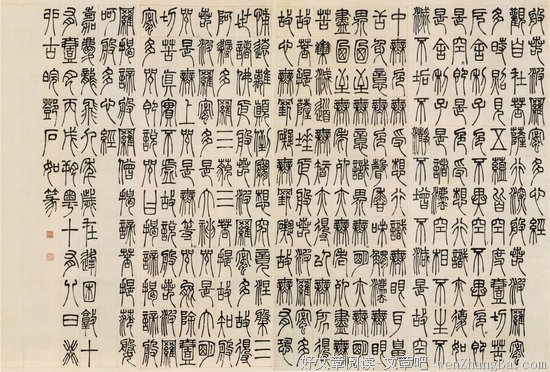 般若波羅蜜多心經
觀自在菩薩行深般若波羅蜜
多時照見五蘊皆空度一切苦
厄舍利子色不異空空不異色
色即是空空即是色受想行識亦復如
是舍利子是諸法空相不生不
滅不垢不淨不增不減是故空
中無色無受想行識無眼耳鼻
舌身意無色聲香味觸法無眼
界乃至無意識界無無明亦無無明
盡乃至無老死亦無老死
盡無苦集滅道無智亦無得以無所得
故菩提薩埵依般若波羅蜜多
故心無罣礙無罣礙故無有恐
怖遠離顛倒夢想究竟涅槃三
世諸佛依般若波羅蜜多故得
阿耨多羅三藐三菩提故知般
若波羅蜜多是大神咒是大明
咒是無上咒是無等等咒能除一
切苦真實不虛故說般若波羅
蜜多咒即說咒曰揭諦揭諦般
羅揭諦般羅僧揭諦菩提薩婆
訶般若多心經
嘉慶龍飛九年歲在困敦十
有一月丙戌朔粵十有八日癸
卯古皖鄧石如篆
好文章阅读-文章吧 wenzhangba.com